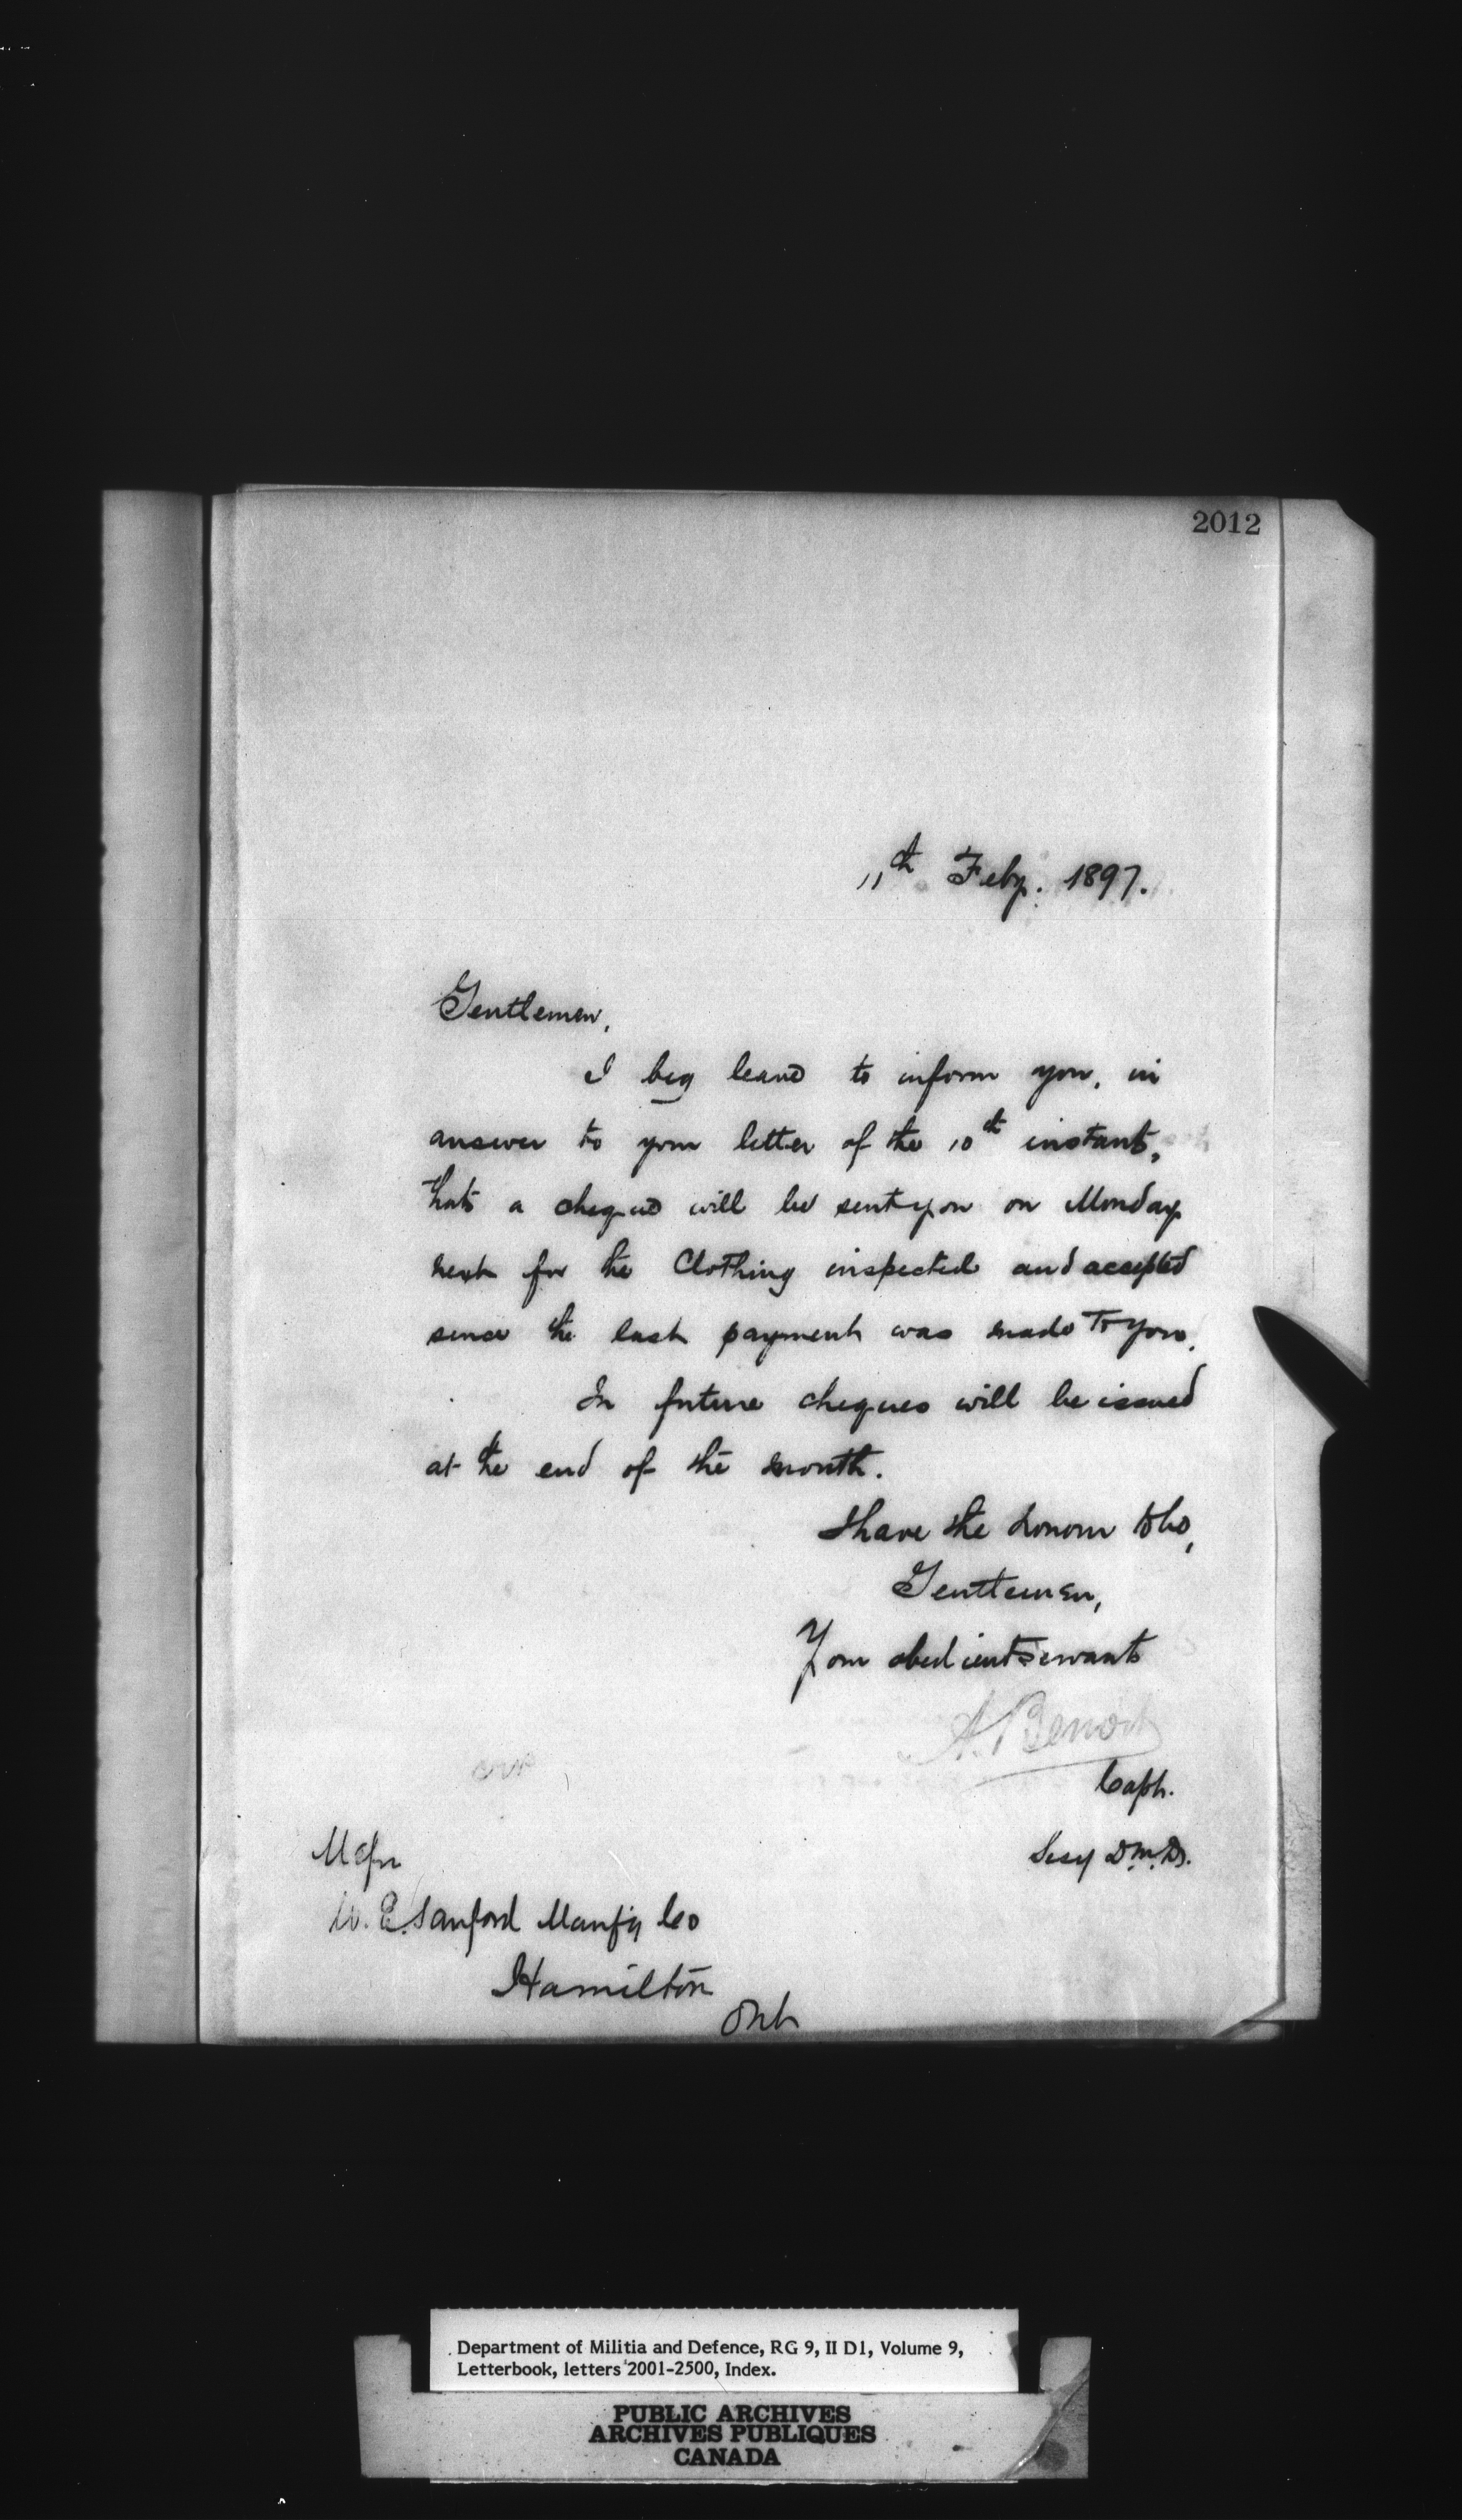 2012
11th Feby. 1897.
Gentlemen,
I beg leave to inform you, in
answer to your letter of the 10th instant,
that a cheque will be sent you on Monday
next for the Clothing inspected and accepted
since the last payment was made to you.
In future cheques will be issued
at the end of the month.
I have the honour to be,
Gentlemen,
Your obedient servant
A. Benoit
Capt.
Secy D.M.D.
Messrs
W. E. Sanford Manfg Co
Hamilton
Ont
Department of Militia and Defence, RG 9, II D1, Volume 9,
Letterbook, letters 2001-2500, Index.
PUBLIC ARCHIVES
ARCHIVES PUBLIQUES
CANADA